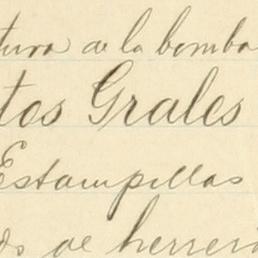 tura de la bomba
tos Grales
Estampillas
os de herrer